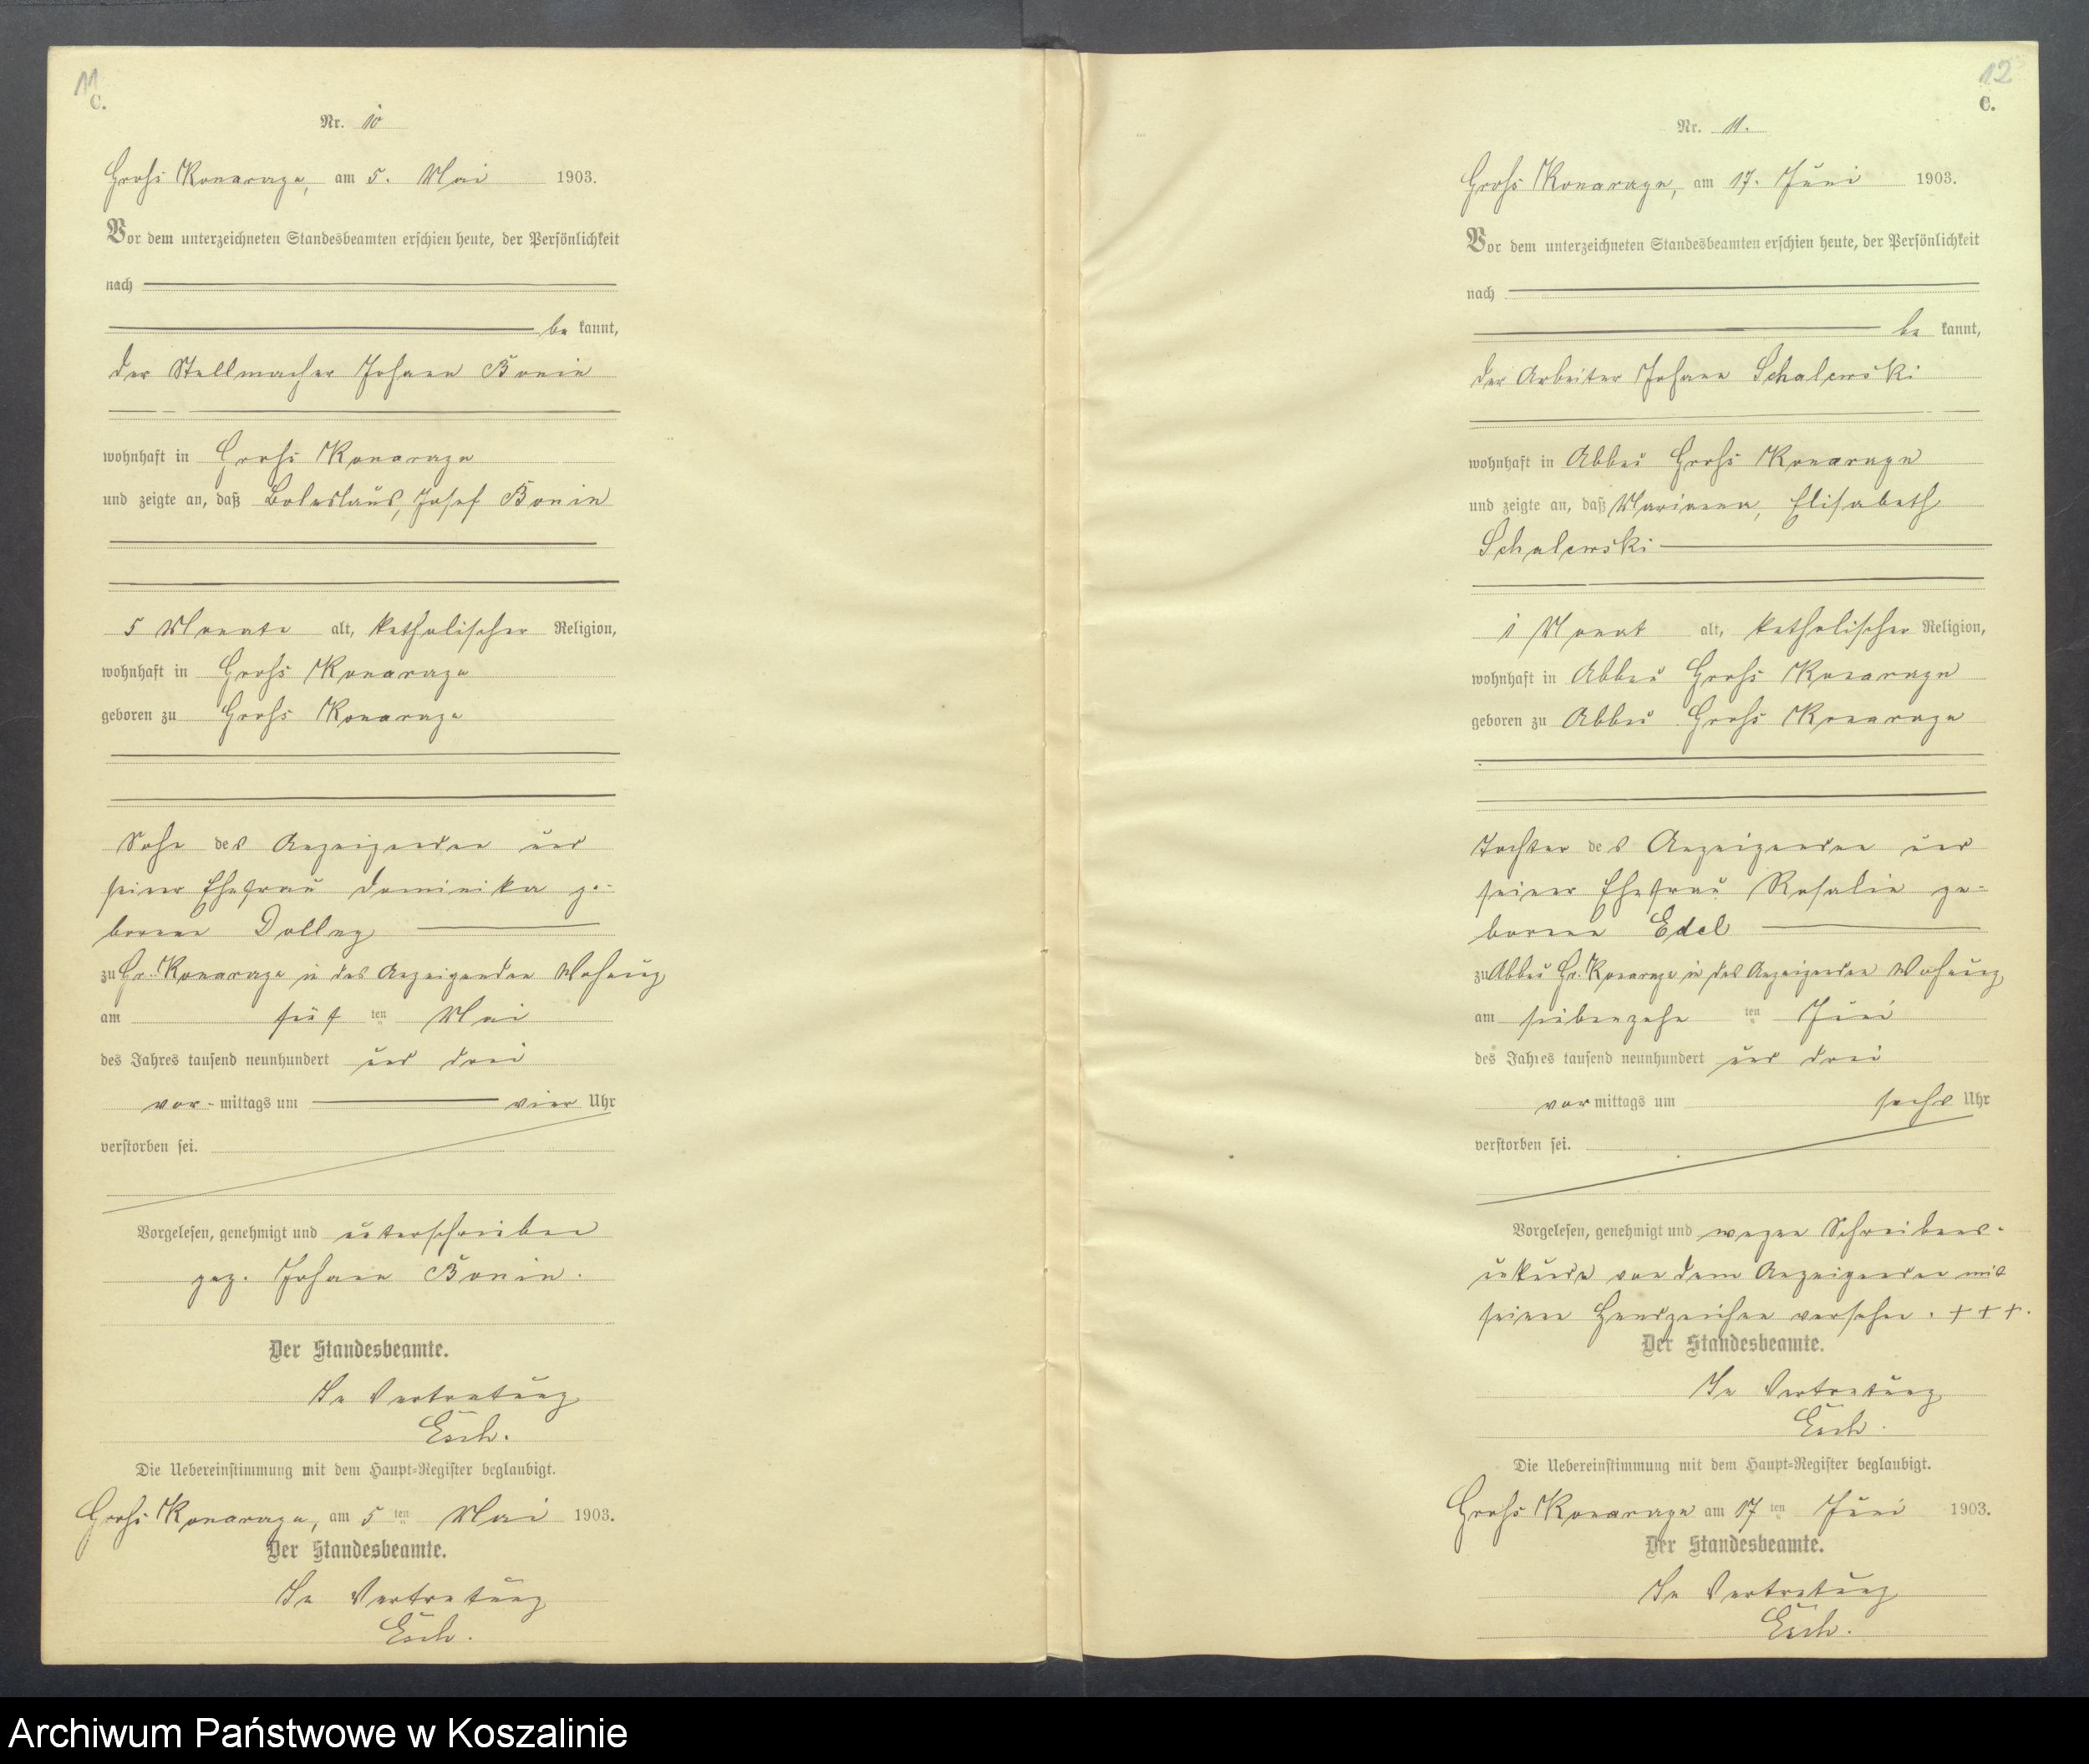 11
C.
Nr. 10
Groß Konarczyn, am 5. Mai 1903.
Vor dem unterzeichneten Standesbeamten erschien heute, der Persönlichkeit
nach
be kannt,
der Stellmacher Johann Bonin
wohnhaft in Groß Konarczyn
und zeigte an, daß Boleslaus, Josef Bonin
5 Monate alt, katholischer Religion,
wohnhaft in Groß Konarczyn
geboren zu Groß Konarczyn
Sohn des Anzeigenden und
seiner Ehefrau Dominika ge-
borene
zu Gr. Konarczyn in des Anzeigenden Wohnung
am fünf ten Mai
des Jahres tausend neunhundert und drei
vor- mittags um vier Uhr
verstorben sei.
Vorgelesen, genehmigt und unterschrieben
gez. Johann Bonin.
Der Standesbeamte.
In Vertretung
Esch.
Die Uebereinstimmung mit dem Haupt-Register beglaubigt.
Groß Konarczyn, am 5 ten Mai 1903.
Der Standesbeamte.
In Vertretung
Esch.
12
C.
Nr. 11.
Groß Konarczyn, am 17. Juni 1903.
Vor dem unterzeichneten Standesbeamten erschien heute, der Persönlichkeit
nach
be kannt,
der Arbeiter Johann Schalewski
wohnhaft in Abbau Groß Konarczyn
und zeigte an, daß Marianna, Elisabeth
Schalewski
1 Monat alt, katholischer Religion,
wohnhaft in Abbau Groß Konarczyn
geboren zu Abbau Groß Konarczyn
Tochter des Anzeigenden und
seiner Ehefrau Rosalie ge-
borene Edel
zu Abbau Gr. Konarczyn in des Anzeigenden Wohnung
am siebenzehn ten Juni
des Jahres tausend neunhundert und drei
vor mittags um sechs Uhr
verstorben sei.
Vorgelesen, genehmigt und wegen Schreibens-
unkunde von dem Anzeigenden mit
seinem Handzeichen versehen. +++.
Der Standesbeamte.
In Vertretung
Esch.
Die Uebereinstimmung mit dem Haupt-Register beglaubigt.
Groß Konarczyn am 17 ten Juni 1903.
Der Standesbeamte.
In Vertretung
Esch.
Archiwum Państwowe w Koszalinie